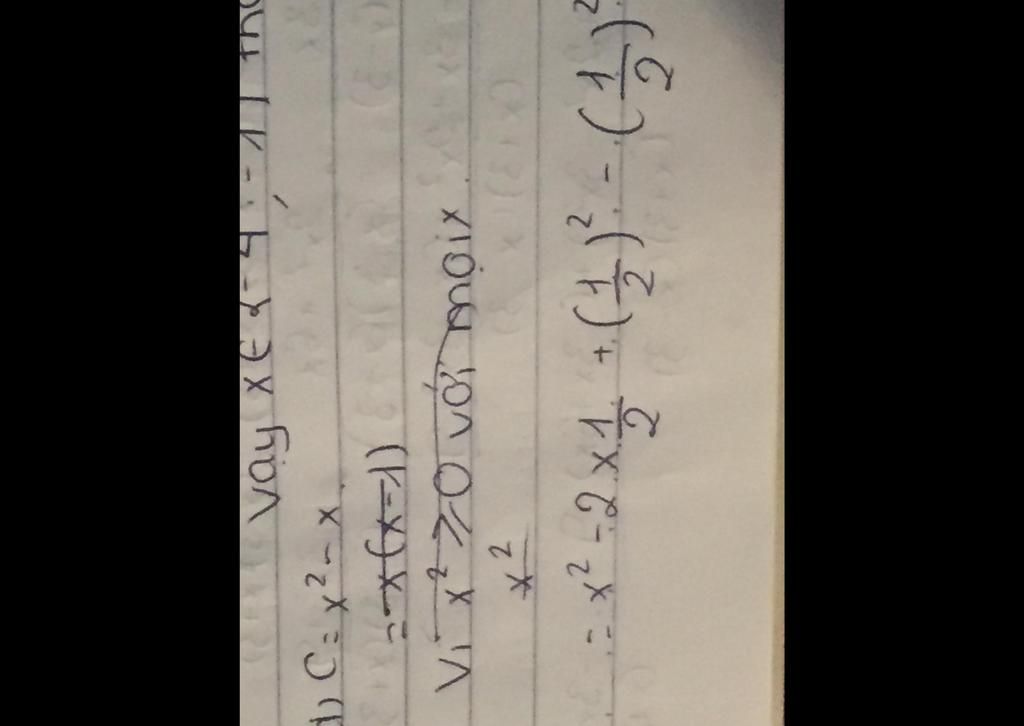 Vậy x ∈ {-4; -1} th
d) C = x² - x
= x(x-1)
Vì x² ≥ 0 với mọi x
x²
= x² - 2 x 1/2 + (1/2)² - (1/2)²